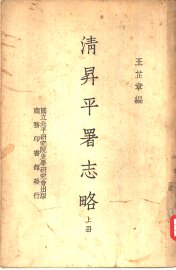 王芷章編
清昇平署志略
上冊
國立北平研究院史學研究會出版
商務印書館發行